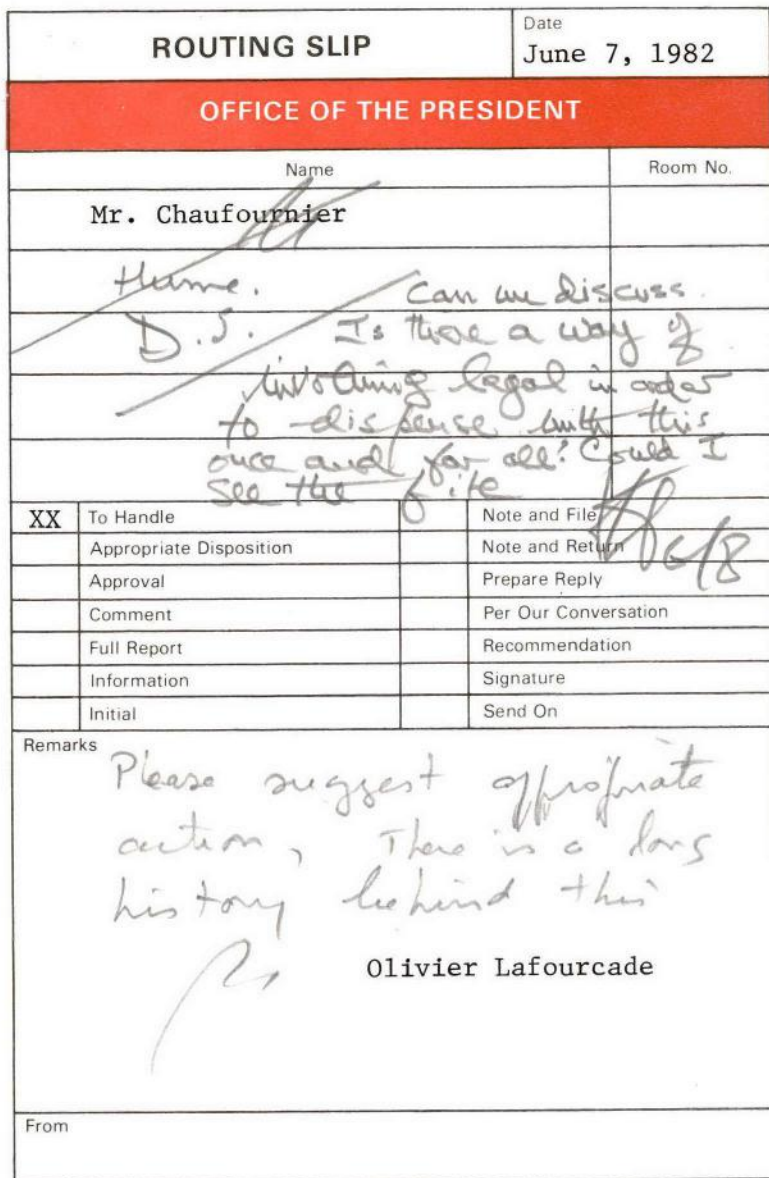 ROUTING SLIP
Date
June 7, 1982
OFFICE OF THE PRESIDENT
Name
Room No.
Mr. Chaufournier
Hume. Can we discuss.
D.J. Is there a way of
involving legal in order
to dispense with this
once and for all? Could I
see the file
6/8
XX To Handle Note and File
Appropriate Disposition Note and Return
Approval Prepare Reply
Comment Per Our Conversation
Full Report Recommendation
Information Signature
Initial Send On
Remarks
Please suggest appropriate
action, There is a long
history behind this
Olivier Lafourcade
From